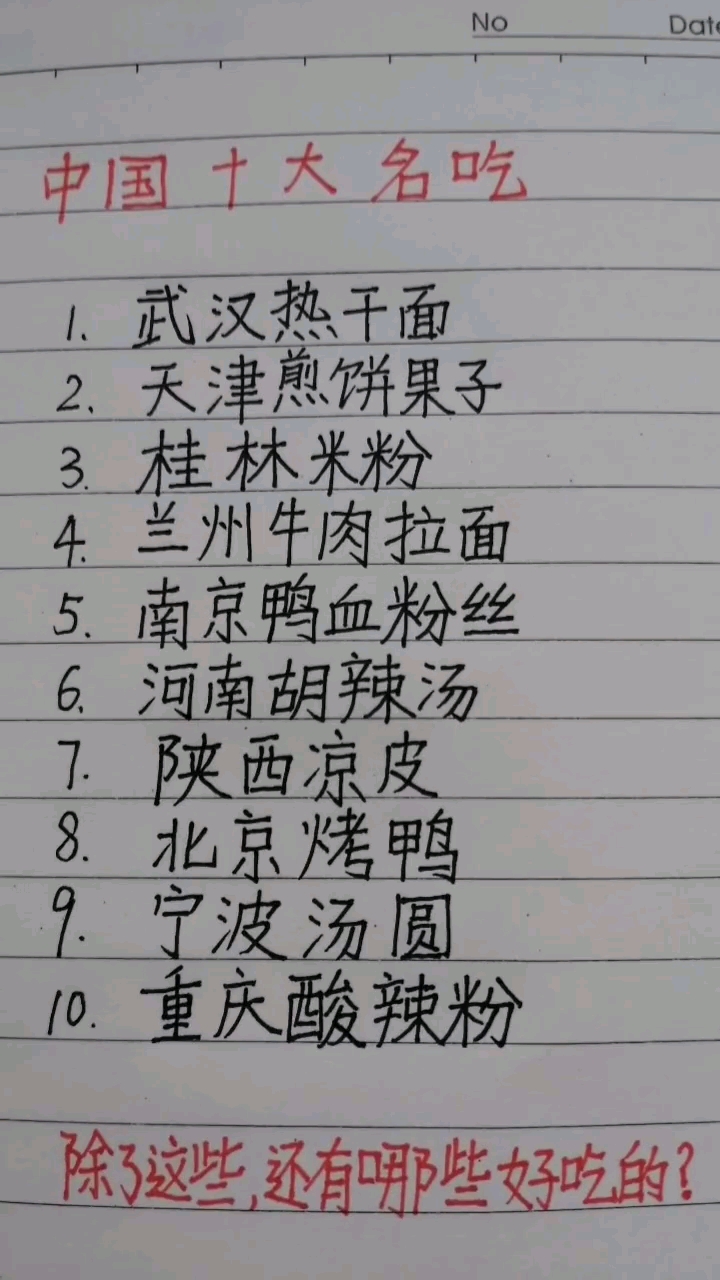 No Date
中国十大名吃
1. 武汉热干面
2. 天津煎饼果子
3. 桂林米粉
4. 兰州牛肉拉面
5. 南京鸭血粉丝
6. 河南胡辣汤
7. 陕西凉皮
8. 北京烤鸭
9. 宁波汤圆
10. 重庆酸辣粉
除了这些,还有哪些好吃的?